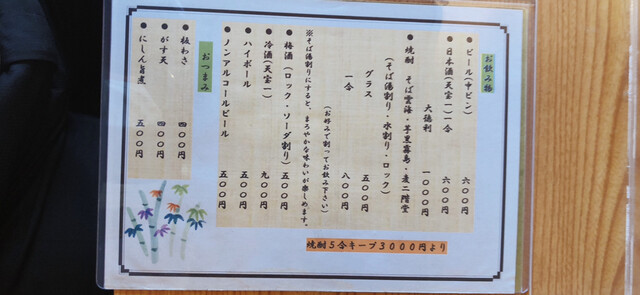 お飲み物
● ビール(中ビン) 六〇〇円
● 日本酒(天宝一)一合 六〇〇円
大徳利 一〇〇〇円
● 焼酎 そば雲海・芋黒霧島・麦二階堂
(そば湯割り・水割り・ロック)
グラス 五〇〇円
一合 八〇〇円
(お好みで割ってお飲み下さい)
※そば湯割りにすると、まろやかな味わいが楽しめます。
● 梅酒(ロック・ソーダ割り) 五〇〇円
● 冷酒(天宝一) 九〇〇円
● ハイボール 五〇〇円
● ノンアルコールビール 五〇〇円
おつまみ
● 板わさ 四〇〇円
● がす天 四〇〇円
● にしん旨煮 五〇〇円
焼酎5合キープ3000円より